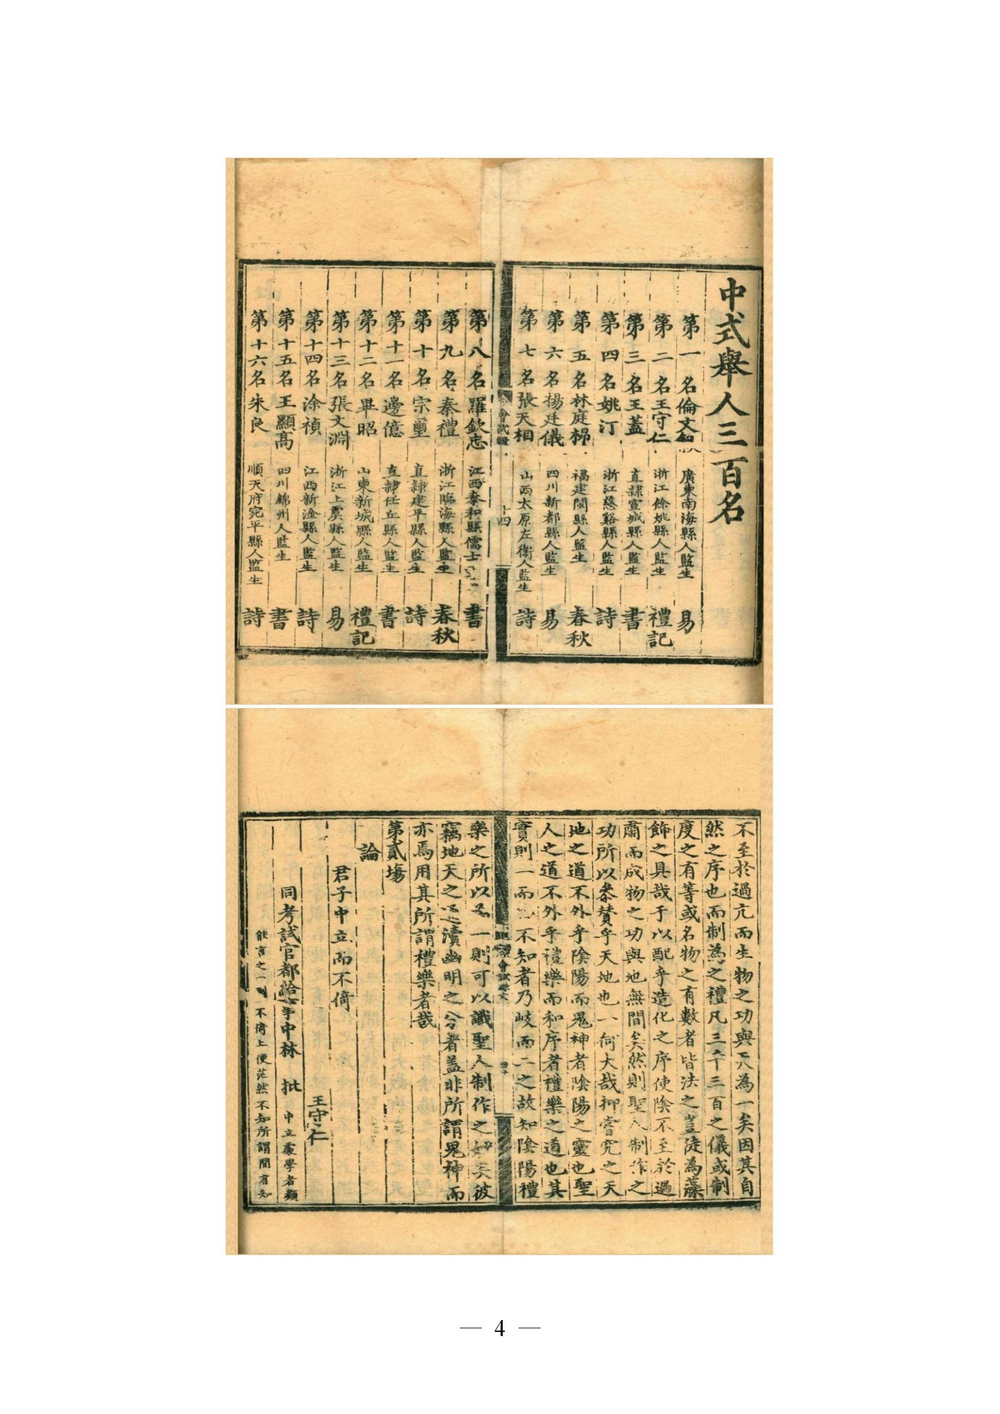 中式舉人三百名
第一名倫文敘 廣東南海縣人監生 易
第二名王守仁 浙江餘姚縣人監生 禮記
第三名王蓋 直隸宣城縣人監生 書
第四名姚汀 浙江慈谿縣人監生 詩
第五名林庭㭿 福建閩縣人監生 春秋
第六名楊廷儀 四川新都縣人監生 易
第七名張天相 山西太原左衛人監生 詩
會試錄 十四
第八名羅欽忠 江西泰和縣儒士 書
第九名秦禮 浙江臨海縣人監生 春秋
第十名宗璽 直隸建平縣人監生 詩
第十一名邊億 直隸任丘縣人監生 書
第十二名畢昭 山東新城縣人監生 禮記
第十三名張文淵 浙江上虞縣人監生 易
第十四名涂禎 江西新淦縣人監生 詩
第十五名王顯高 四川綿州人監生 書
第十六名朱良 順天府宛平縣人監生 詩
不至於過亢而生物之功與天為一矣因其自
然之序也而制為之禮凡三千三百之儀或制
度之有等或名物之有數者皆法之豈徒為藻
飾之具哉于以配乎造化之序使陰不至於過
肅而成物之功與地無間矣然則聖人制作之
功所以參贊乎天地也一何大哉抑嘗究之天
地之道不外乎陰陽而鬼神者陰陽之靈也聖
人之道不外乎禮樂而和序者禮樂之道也其
實則一而已不知者乃岐而二之故知陰陽禮
會試錄
樂之所以為一則可以識聖人制作之妙矣彼
竊地天之通瀆幽明之分者蓋非所謂鬼神而
亦焉用其所謂禮樂者哉
第貳場
論
君子中立而不倚
王守仁
同考試官都給事中林 批 中立處學者類
能言之 不倚上便茫然不知所謂間有知
— 4 —